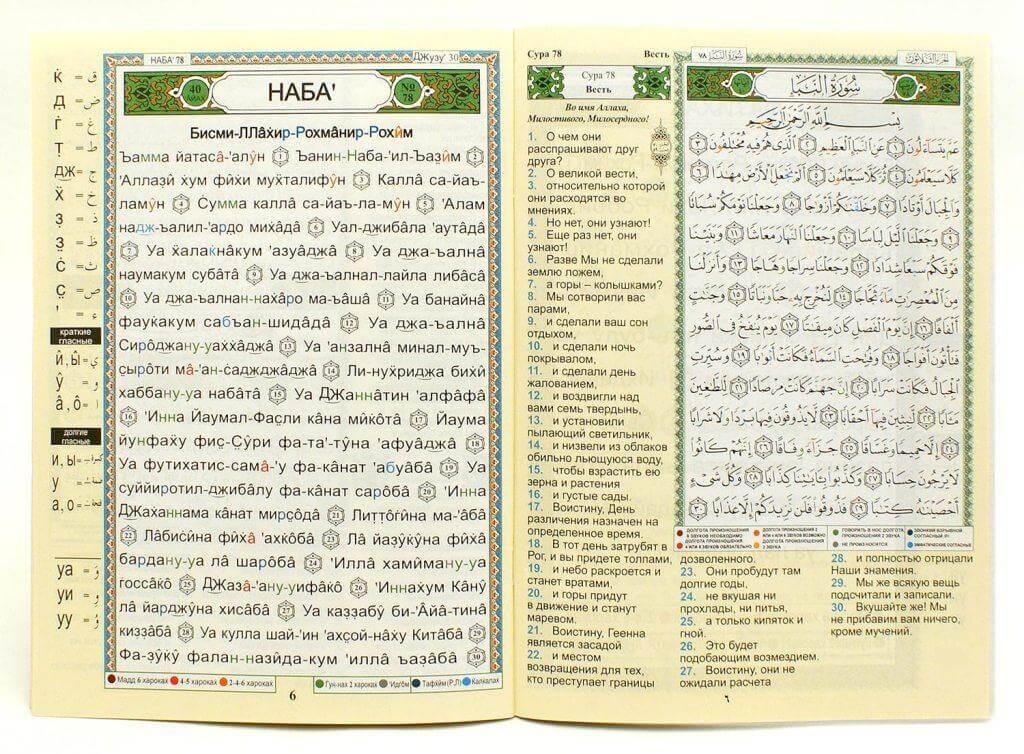 Ќ = ق
Д = ض
Ѓ = غ
Т = ط
ДЖ = ج
Х = ح
З = ذ
З = ظ
С = ث
С = ص
' = ء
краткие
гласные
долгие
гласные
уа = وَ
уи = وِ
уу = وُ
НАБА' 78
ДЖузу' 30
40
АЙАХ
НАБА'
№
78
Бисми-ЛЛâхир-Рохмâнир-Рохӣм
Ъамма йатасâ-'алӯн 1 Ъанин-Наба-'ил-Ъазӣм 2
'Аллазӣ хум фӣхи мухталифӯн 3 Каллâ са-йаъ-
ламӯн 4 Сумма каллâ са-йаъ-ла-мӯн 5 'Алам
надж-ъалил-'ардо михâдâ 6 Уал-джибâла 'аутâдâ
7 Уа халакнâкум 'азуâджâ 8 Уа джа-ъалнâ
наумакум субâтâ 9 Уа джа-ъалнал-лайла либâсâ
10 Уа джа-ъалнан-нахâро ма-ъâшâ 11 Уа банайнâ
фауќакум сабъан-шидâдâ 12 Уа джа-ъалнâ
Сирôджану-уаххâджâ 13 Уа 'анзалнâ минал-муъ-
сырôти мâ-'ан-саджджâджâ 14 Ли-нухриджа бихӣ
хаббану-уа набâтâ 15 Уа ДЖаннâтин 'алфâфâ
16 'Инна Йаумал-Фасли кâна мӣкôтâ 17 Йаума
йунфаху фис-Сӯри фа-та'-тӯна 'афуâджâ 18
Уа футихатис-самâ-'у фа-кâнат 'абуâбâ 19 Уа
суййиротил-джибâлу фа-кâнат сарôбâ 20 'Инна
ДЖаханнама кâнат мирсôдâ 21 Литтôгӣна ма-'âбâ
22 Лâбисӣна фӣхâ 'ахкôбâ 23 Лâ йазӯкӯна фӣхâ
бардану-уа лâ шарôбâ 24 'Иллâ хамӣману-уа
госсâкô 25 ДЖазâ-'ану-уифâкô 26 'Иннахум Кâнӯ
лâ йарджӯна хисâбâ 27 Уа каззабӯ би-'Âйâ-тинâ
киззâбâ 28 Уа кулла шай-'ин 'ахсой-нâху Китâбâ 29
Фа-зӯкӯ фалан-назӣда-кум 'иллâ ъазâбâ 30
Мадд 6 хароках 4-5 хароках 2-4-6 хароках Гун-нах 2 хароках 'Идгôм Тафхӣм (Р,Л) Калкалах
6
Сура 78 Весть
Сура 78
Весть
Во имя Аллаха,
Милостивого, Милосердного!
1. О чем они
расспрашивают друг
друга?
2. О великой вести,
3. относительно которой
они расходятся во
мнениях.
4. Но нет, они узнают!
5. Еще раз нет, они
узнают!
6. Разве Мы не сделали
землю ложем,
7. а горы – колышками?
8. Мы сотворили вас
парами,
9. и сделали ваш сон
отдыхом,
10. и сделали ночь
покрывалом,
11. и сделали день
жалованием,
12. и воздвигли над
вами семь твердынь,
13. и установили
пылающий светильник,
14. и низвели из облаков
обильно льющуюся воду,
15. чтобы взрастить ею
зерна и растения
16. и густые сады.
17. Воистину, День
различения назначен на
определенное время.
18. В тот день затрубят в
Рог, и вы придете толпами,
19. и небо раскроется и
станет вратами,
20. и горы придут
в движение и станут
маревом.
21. Воистину, Геенна
является засадой
22. и местом
возвращения для тех,
кто преступает границы
سُورَةُ النَّبَإِ ٧٨
الجزء الثلاثون
سُورَةُ النَّبَإِ
بِسْمِ اللَّهِ الرَّحْمَٰنِ الرَّحِيمِ
عَمَّ يَتَسَاءَلُونَ ١ عَنِ النَّبَإِ الْعَظِيمِ ٢ الَّذِي هُمْ فِيهِ مُخْتَلِفُونَ ٣
كَلَّا سَيَعْلَمُونَ ٤ ثُمَّ كَلَّا سَيَعْلَمُونَ ٥ أَلَمْ نَجْعَلِ الْأَرْضَ مِهَادًا ٦
وَالْجِبَالَ أَوْتَادًا ٧ وَخَلَقْنَاكُمْ أَزْوَاجًا ٨ وَجَعَلْنَا نَوْمَكُمْ سُبَاتًا
٩ وَجَعَلْنَا اللَّيْلَ لِبَاسًا ١٠ وَجَعَلْنَا النَّهَارَ مَعَاشًا ١١ وَبَنَيْنَا
فَوْقَكُمْ سَبْعًا شِدَادًا ١٢ وَجَعَلْنَا سِرَاجًا وَهَّاجًا ١٣ وَأَنْزَلْنَا
مِنَ الْمُعْصِرَاتِ مَاءً ثَجَّاجًا ١٤ لِنُخْرِجَ بِهِ حَبًّا وَنَبَاتًا ١٥ وَجَنَّاتٍ
أَلْفَافًا ١٦ إِنَّ يَوْمَ الْفَصْلِ كَانَ مِيقَاتًا ١٧ يَوْمَ يُنْفَخُ فِي الصُّورِ
فَتَأْتُونَ أَفْوَاجًا ١٨ وَفُتِحَتِ السَّمَاءُ فَكَانَتْ أَبْوَابًا ١٩ وَسُيِّرَتِ
الْجِبَالُ فَكَانَتْ سَرَابًا ٢٠ إِنَّ جَهَنَّمَ كَانَتْ مِرْصَادًا ٢١ لِلطَّاغِينَ
مَآبًا ٢٢ لَابِثِينَ فِيهَا أَحْقَابًا ٢٣ لَا يَذُوقُونَ فِيهَا بَرْدًا وَلَا شَرَابًا
٢٤ إِلَّا حَمِيمًا وَغَسَّاقًا ٢٥ جَزَاءً وِفَاقًا ٢٦ إِنَّهُمْ كَانُوا
لَا يَرْجُونَ حِسَابًا ٢٧ وَكَذَّبُوا بِآيَاتِنَا كِذَّابًا ٢٨ وَكُلَّ شَيْءٍ
أَحْصَيْنَاهُ كِتَابًا ٢٩ فَذُوقُوا فَلَنْ نَزِيدَكُمْ إِلَّا عَذَابًا ٣٠
дозволенного.
23. Они пробудут там
долгие годы,
24. не вкушая ни
прохлады, ни питья,
25. а только кипяток и
гной.
26. Это будет
подобающим возмездием.
27. Воистину, они не
ожидали расчета
28. и полностью отрицали
Наши знамения.
29. Мы же всякую вещь
подсчитали и записали.
30. Вкушайте же! Мы
не прибавим вам ничего,
кроме мучений.
٦